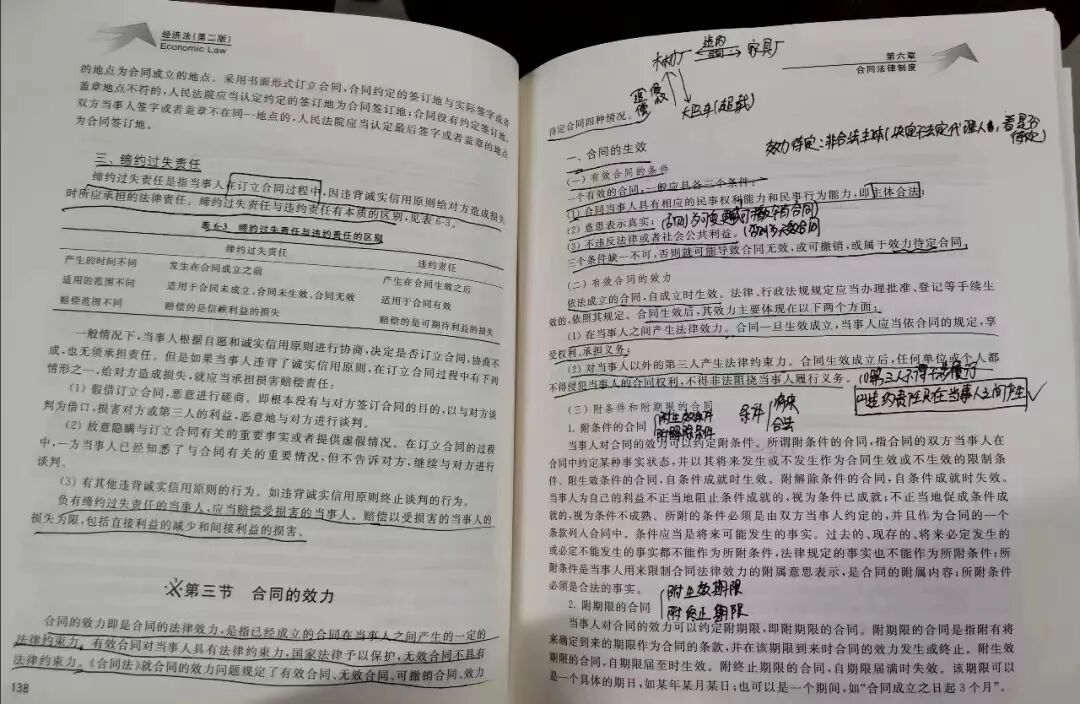 经济法(第二版)
Economic Law
的地点为合同成立的地点。采用书面形式订立合同,合同约定的签订地与实际签字或者
盖章地点不符的,人民法院应当认定约定的签订地为合同签订地;合同没有约定签订地,
双方当事人签字或者盖章不在同一地点的,人民法院应当认定最后签字或者盖章的地点
为合同签订地。
三、缔约过失责任
缔约过失责任是指当事人在订立合同过程中,因违背诚实信用原则给对方造成损失
时所应承担的法律责任。缔约过失责任与违约责任有本质的区别,见表6-3。
表6-3 缔约过失责任与违约责任的区别
缔约过失责任 违约责任
产生的时间不同 发生在合同成立之前 产生在合同生效之后
适用的范围不同 适用于合同未成立、合同未生效、合同无效 适用于合同有效
赔偿范围不同 赔偿的是信赖利益的损失 赔偿的是可期待利益的损失
一般情况下,当事人根据自愿和诚实信用原则进行协商,决定是否订立合同,协商不
成,也无须承担责任。但是如果当事人违背了诚实信用原则,在订立合同过程中有下列
情形之一,给对方造成损失,就应当承担损害赔偿责任:
(1) 假借订立合同,恶意进行磋商。即根本没有与对方签订合同的目的,以与对方谈
判为借口,损害对方或第三人的利益,恶意地与对方进行谈判。
(2) 故意隐瞒与订立合同有关的重要事实或者提供虚假情况。在订立合同的过程
中,一方当事人已经知悉了与合同有关的重要情况,但不告诉对方,继续与对方进行
谈判。
(3) 有其他违背诚实信用原则的行为。如违背诚实信用原则终止谈判的行为。
负有缔约过失责任的当事人,应当赔偿受损害的当事人。赔偿以受损害的当事人的
损失为限,包括直接利益的减少和间接利益的损害。
第三节 合同的效力
合同的效力即是合同的法律效力,是指已经成立的合同在当事人之间产生的一定的
法律约束力。有效合同对当事人具有法律约束力,国家法律予以保护,无效合同不具有
法律约束力。《合同法》就合同的效力问题规定了有效合同、无效合同、可撤销合同、效力
138
第六章
合同法律制度
木材厂 家具厂
大卫车(超载)
待定合同四种情况。
效力待定:非合法主体(决定于法定代理人 看是否
一、合同的生效
(一) 有效合同的条件
一个有效的合同,一般应具备三个条件:
(1) 合同当事人具有相应的民事权利能力和民事行为能力,即主体合法;
(2) 意思表示真实;
(3) 不违反法律或者社会公共利益。
三个条件缺一不可,否则就可能导致合同无效,或可撤销,或属于效力待定合同。
(二) 有效合同的效力
依法成立的合同,自成立时生效。法律、行政法规规定应当办理批准、登记等手续生
效的,依照其规定。合同生效后,其效力主要体现在以下两个方面:
(1) 在当事人之间产生法律效力。合同一旦生效成立,当事人应当依合同的规定,享
受权利,承担义务;
(2) 对当事人以外的第三人产生法律约束力。合同生效成立后,任何单位或个人都
不得侵犯当事人的合同权利,不得非法阻挠当事人履行义务。
(2)违约责任只在当事人之间产生
(三) 附条件和附期限的合同
1. 附条件的合同 附生效条件 条件 将来
附解除条件 合法
当事人对合同的效力可以约定附条件。所谓附条件的合同,指合同的双方当事人在
合同中约定某种事实状态,并以其将来发生或不发生作为合同生效或不生效的限制条
件。附生效条件的合同,自条件成就时生效。附解除条件的合同,自条件成就时失效。
当事人为自己的利益不正当地阻止条件成就的,视为条件已成就;不正当地促成条件成
就的,视为条件不成熟。所附的条件必须是由双方当事人约定的,并且作为合同的一个
条款列入合同中。条件应当是将来可能发生的事实。过去的、现存的、将来必定发生的
或必定不能发生的事实都不能作为所附条件,法律规定的事实也不能作为所附条件;所
附条件是当事人用来限制合同法律效力的附属意思表示,是合同的附属内容;所附条件
必须是合法的事实。
2. 附期限的合同 附生效期限
附终止期限
当事人对合同的效力可以约定附期限,即附期限的合同。附期限的合同是指附有将
来确定到来的期限作为合同的条款,并在该期限到来时合同的效力发生或终止。附生效
期限的合同,自期限届至时生效。附终止期限的合同,自期限届满时失效。该期限可以
是一个具体的期日,如某年某月某日;也可以是一个期间,如“合同成立之日起3个月”。